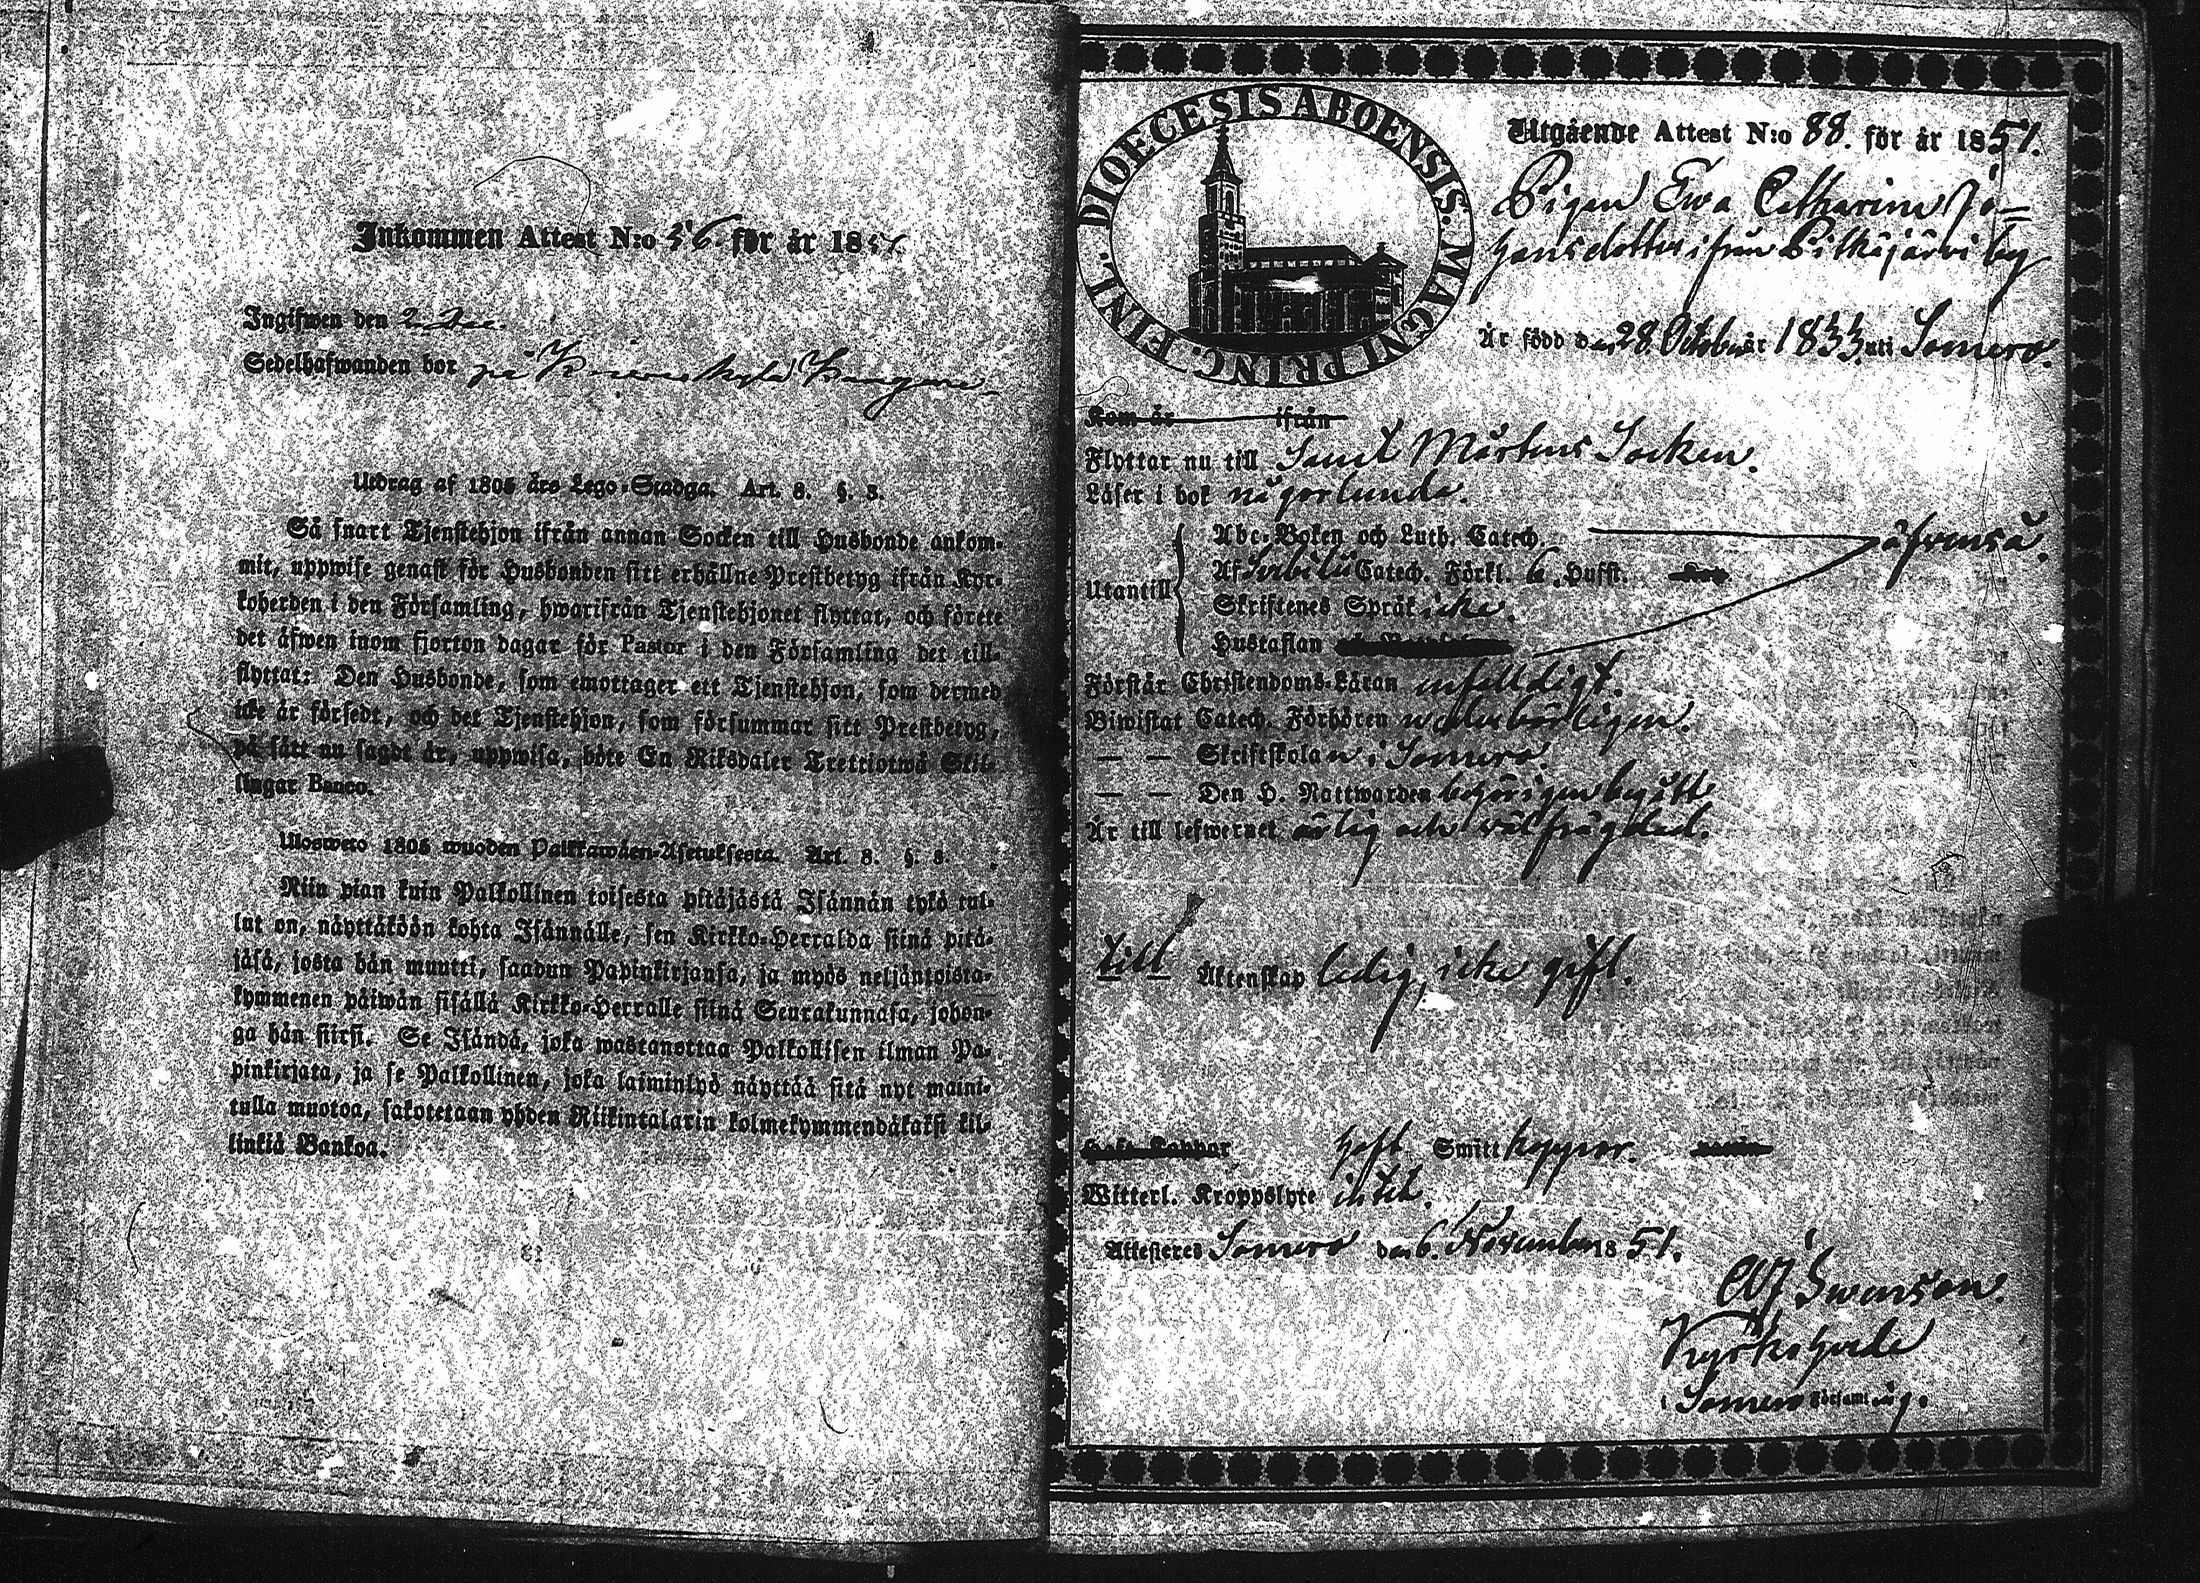 Inkommen Attest N:o 56. för år 1851.
Ingifwen den 2 Dec.
Sedelhafwanden bor på
Utdrag af 1805 års Lego-Stadga. Art. 8. §. 3.
Så snart Tjenstehjon ifrån annan Socken till Husbonde ankom-
mit, uppwise genast för Husbonden sitt erhållne Prestbetyg ifrån Kyr-
koherden i den Församling, hwarifrån Tjenstehjonet flyttat, och förete
det äfwen inom fjorton dagar för Pastor i den Församling det till-
flyttat: Den Husbonde, som emottager ett Tjenstehjon, som dermed
icke är försedt, och det Tjenstehjon, som försummar sitt Prestbetyg,
på sätt nu sagdt är, uppwisa, böte En Riksdaler Trettiotwå Skil-
lingar Banco.
Uloswеto 1805 wuoden Palkkawäen-Asetuksesta. Art. 8. §. 3.
Niin pian kuin Palkollinen toisesta pitäjästä Isännän tykö tul-
lut on, näyttäköön kohta Isännälle, sen Kirkko-Herralda siinä pitä-
jäsä, josta hän muutti, saadun Papinkirjansa, ja myös neljäntoista-
kymmenen päiwän sisällä Kirkko-Herralle siinä Seurakunnasa, johon-
ga hän siirsi. Se Isändä, joka wastanottaa Palkollisen ilman Pa-
pinkirjata, ja se Palkollinen, joka laiminlyö näyttää sitä nyt maini-
tulla muotoa, sakotetaan yhden Riikintalarin kolmekymmendäkaksi kil-
linkiä Bankoa.
DIOECESIS ABOENSIS. MAGNI PRINC. FINL.
Utgående Attest N:o 88. för år 1851.
Pigan Ewa Catharina Jo-
hansdotter ifrån Pitkäjärvi by
Är född den 28 October år 1833 uti Somero.
Kom år ifrån
Flyttar nu till Sanct Mårtens Socken.
Läser i bok någorlunda.
Utantill
Abc-Boken och Luth. Catech.
Af Svebilii Catech. Förkl. 6 Hufst.
Skriftenes Språk icke.
Hustaflan
äfvenså.
Förstår Christendoms-Läran enfaldigt.
Biwistat Catech. Förhören wederbörligen.
— — Skriftskolan i Somero.
— — Den H. Nattwarden behörigen begått
Är till lefwernet ärlig och wälfrägdad.
till Äktenskap ledig, icke gift.
Haft Koppor haft Smittkoppor.
Witterl. Kroppslyte intet.
Attesteres Somero den 6. November 1851.
Swenson.
Kyrkoherde
i Somero Församling.